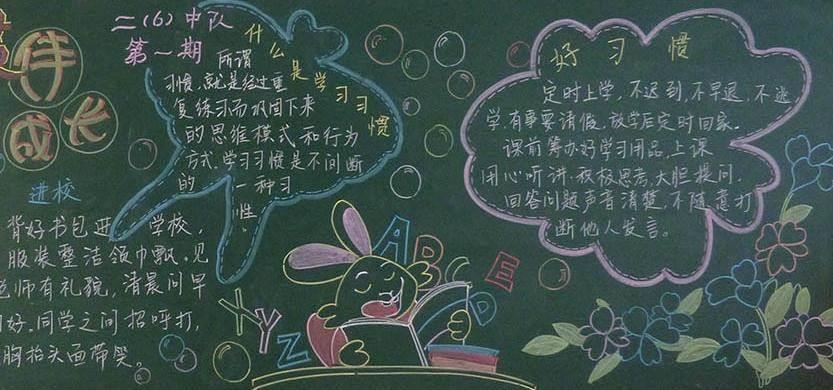 伴
成长
二(6)中队
第一期
什么是学习习惯
所谓
习惯,就是经过重
复练习而巩固下来
的思维模式和行为
方式,学习习惯是不间断
的 一种习
性。
进校
背好书包进 学校,
服装整洁领巾飘。见
老师有礼貌,清晨问早
问好.同学之间招呼打,
胸抬头面带笑。
XYZ
ABCDE
好习惯
定时上学,不迟到,不早退,不逃
学,有事要请假,放学后定时回家。
课前筹办好学习用品,上课
用心听讲,积极思考,大胆提问.
回答问题声音清楚,不随意打
断他人发言。